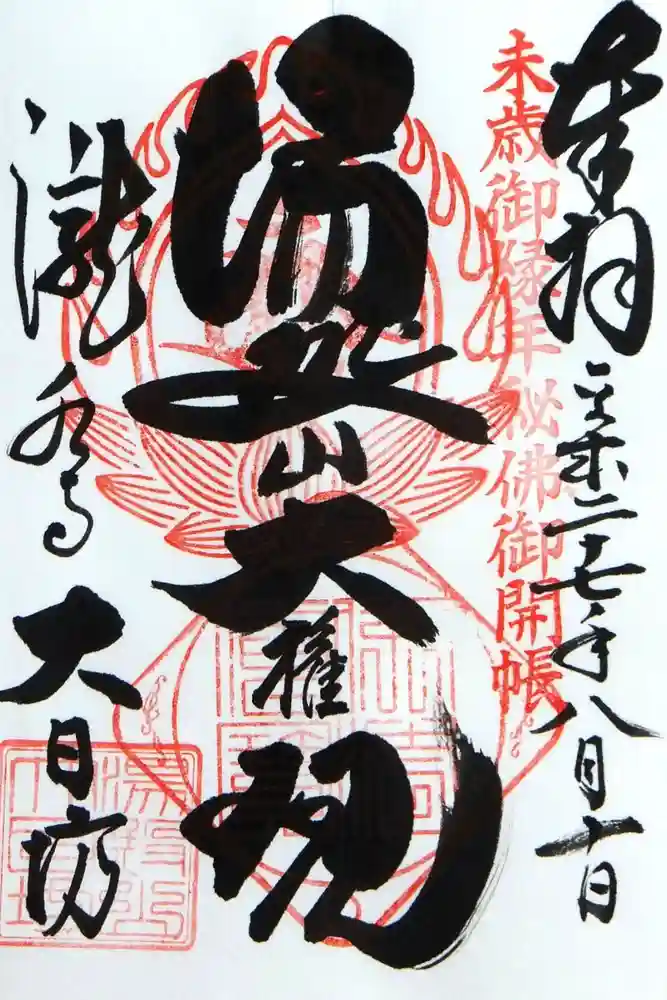 奉拝
平成二十七年八月十日
未歳御縁年秘佛御開帳
湯殿山大権現
瀧水寺
大日坊